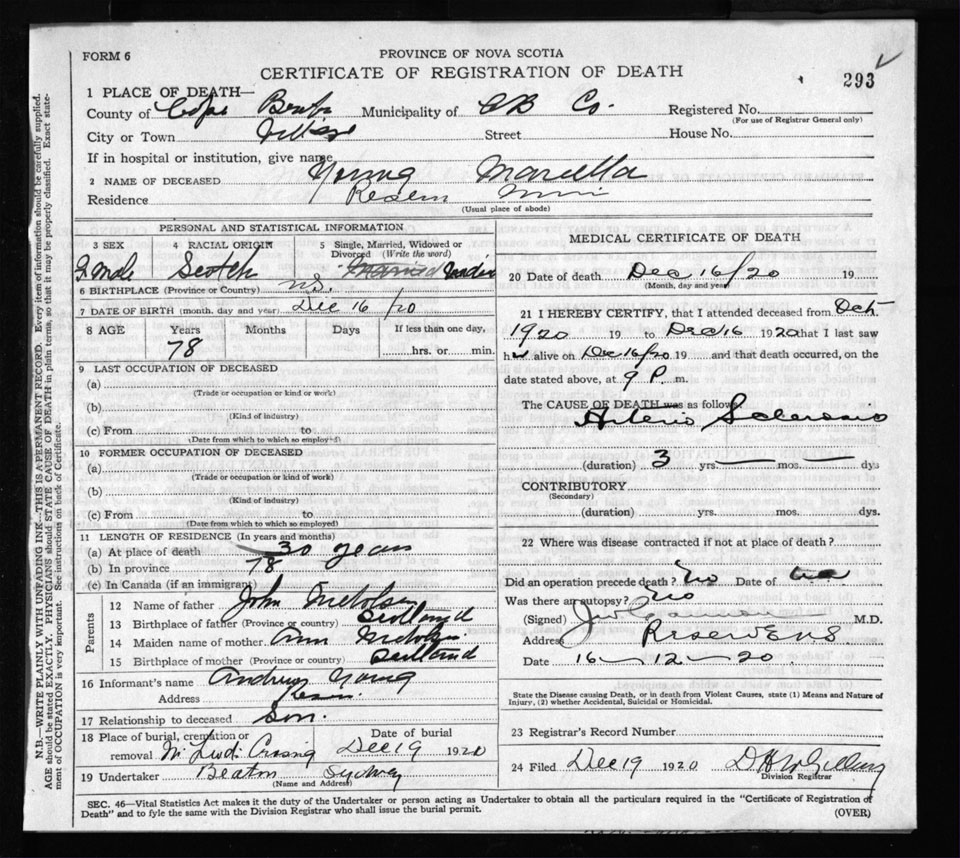 FORM 6
PROVINCE OF NOVA SCOTIA
CERTIFICATE OF REGISTRATION OF DEATH
293
1 PLACE OF DEATH—
County of Cape Breton Municipality of C B Co. Registered No.
(For use of Registrar General only)
City or Town Street House No.
If in hospital or institution, give name
2 NAME OF DECEASED Young Marcella
Residence Reserve Mines
(Usual place of abode)
PERSONAL AND STATISTICAL INFORMATION
3 SEX 4 RACIAL ORIGIN 5 Single, Married, Widowed or Divorced (Write the word)
Female Scotch
6 BIRTHPLACE (Province or Country) N.S.
7 DATE OF BIRTH (month, day and year) Dec 16/20
8 AGE Years Months Days If less than one day,
78 hrs. or min.
9 LAST OCCUPATION OF DECEASED
(a)
(Trade or occupation or kind or work)
(b)
(Kind of industry)
(c) From to
(Date from which to which so employed)
10 FORMER OCCUPATION OF DECEASED
(a)
(Trade or occupation or kind of work)
(b)
(Kind of industry)
(c) From to
(Date from which to which so employed)
11 LENGTH OF RESIDENCE (In years and months)
(a) At place of death 30 years
(b) In province 78
(c) In Canada (if an immigrant)
Parents
12 Name of father John Nicholson
13 Birthplace of father (Province or country) Scotland
14 Maiden name of mother Ann Nicholson
15 Birthplace of mother (Province or country) Scotland
16 Informant's name Andrew Young
Address
17 Relationship to deceased Son.
18 Place of burial, cremation or Date of burial
removal Crossing Dec 19 1920
19 Undertaker Beaton Sydney
(Name and Address)
MEDICAL CERTIFICATE OF DEATH
20 Date of death Dec 16/20 19
(Month, day and year)
21 I HEREBY CERTIFY, that I attended deceased from Oct
1920 19 to Dec 16 1920 that I last saw
her alive on Dec 16/20 19 and that death occurred, on the
date stated above, at 9 P. m.
The CAUSE OF DEATH was as follows
Arterio Sclerosis
(duration) 3 yrs. mos. dys
CONTRIBUTORY
(Secondary)
(duration) yrs. mos. dys.
22 Where was disease contracted if not at place of death?
Did an operation precede death? No Date of
Was there an autopsy? No
(Signed) M.D.
Address Reserve N S
Date 16—12—20
State the Disease causing Death, or in death from Violent Causes, state (1) Means and Nature of
Injury, (2) whether Accidental, Suicidal or Homicidal.
23 Registrar's Record Number
24 Filed Dec 19 1920
Division Registrar
SEC. 46—Vital Statistics Act makes it the duty of the Undertaker or person acting as Undertaker to obtain all the particulars required in the "Certificate of Registration of
Death" and to fyle the same with the Division Registrar who shall issue the burial permit.
(OVER)
N.B.—WRITE PLAINLY WITH UNFADING INK—THIS IS A PERMANENT RECORD. Every item of information should be carefully supplied.
AGE should be stated EXACTLY. PHYSICIANS should STATE CAUSE OF DEATH in plain terms, so that it may be properly classified. Exact state-
ment of OCCUPATION is very important. See instructions on back of Certificate.